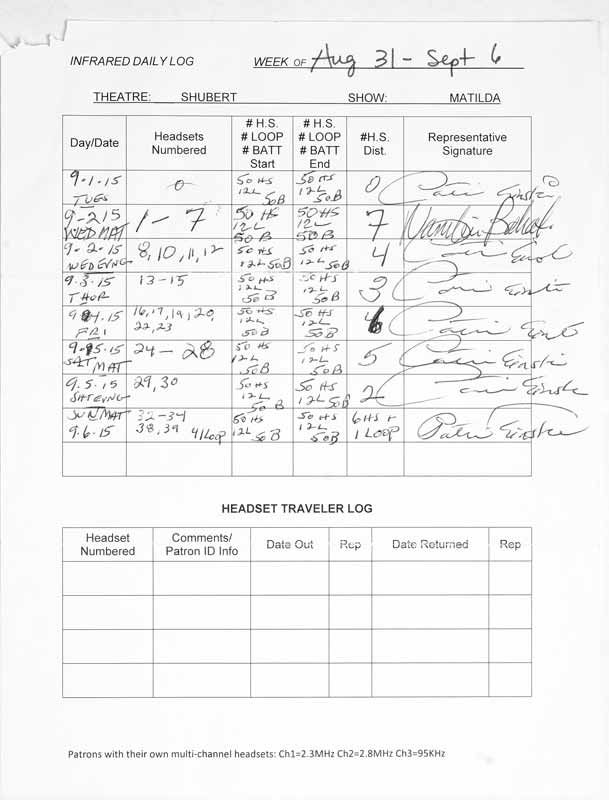 INFRARED DAILY LOG WEEK OF Aug 31 - Sept 6
THEATRE: SHUBERT SHOW: MATILDA
Day/Date Headsets Numbered # H.S. # LOOP # BATT Start # H.S. # LOOP # BATT End #H.S. Dist. Representative Signature
9.1.15 TUES 0 50 HS 12L 50B 50 HS 12L 50B 0
9-2 15 WED MAT 1 - 7 50 HS 12L 50 B 50 HS 12L 50 B 7
9.2.15 WED EVNG 8, 10, 11, 12 50 HS 12L 50B 50 HS 12L 50B 4
9.3.15 THUR 13-15 50 HS 12L 50B 50 HS 12L 50B 3
9.4.15 FRI 16, 17, 19, 20, 22, 23 50 HS 12L 50B 50 HS 12L 50B 6
9.5.15 SAT MAT 24 - 28 50 HS 12L 50B 50 HS 12L 50B 5
9.5.15 SAT EVNG 29, 30 50 HS 12L 50 B 50 HS 12L 50B 2
SUN MAT 9.6.15 32-34 38, 39 41 Loop 50 HS 12L 50B 50 HS 12L 50B 6 HS + 1 LOOP
HEADSET TRAVELER LOG
Headset Numbered Comments/ Patron ID Info Date Out Rep Date Returned Rep
Patrons with their own multi-channel headsets: Ch1=2.3MHz Ch2=2.8MHz Ch3=95KHz